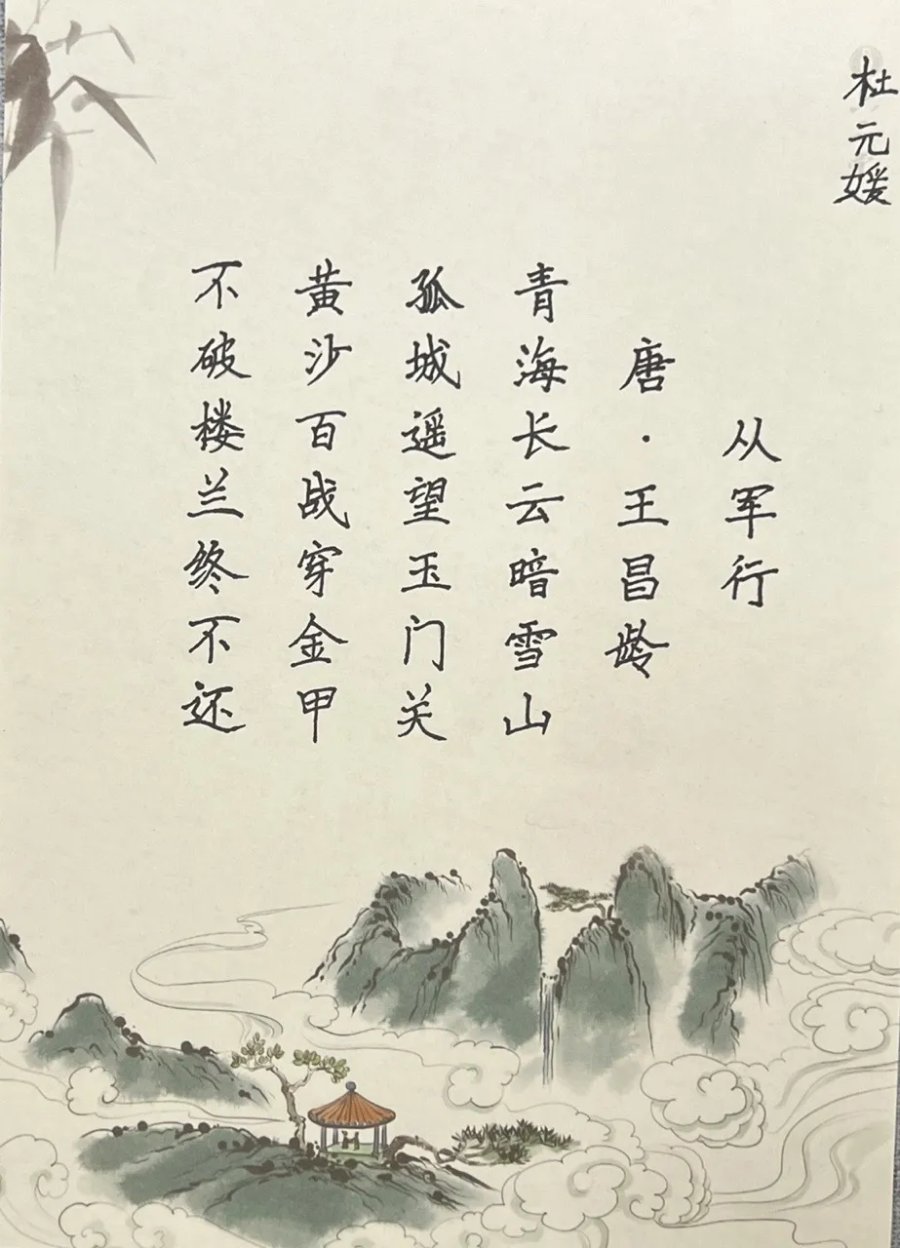 杜元媛
从军行
唐·王昌龄
青海长云暗雪山
孤城遥望玉门关
黄沙百战穿金甲
不破楼兰终不还